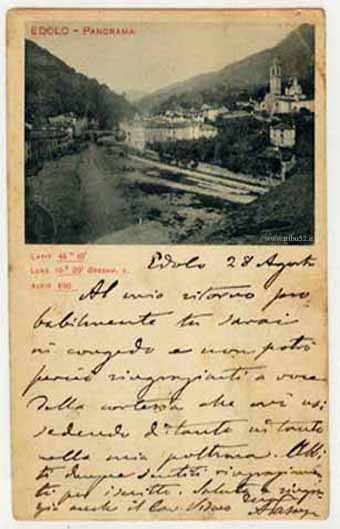 EDOLO - PANORAMA
www.tribu52.it
LATIT. 46° 10'
LONG. 10° 20' GREENW. E.
ALTIT. 690
Edolo 28 Agosto
Al mio ritorno pro
babilmente tu sarai
in congedo e non potrò
perciò ringraziarti a voce
della cortesia che mi usi
sedendo di tanto in tanto
nella mia poltrona.
ti dunque sentiti ringraziamen
ti per iscritto. Saluta e ringra
zia anche il Cav.